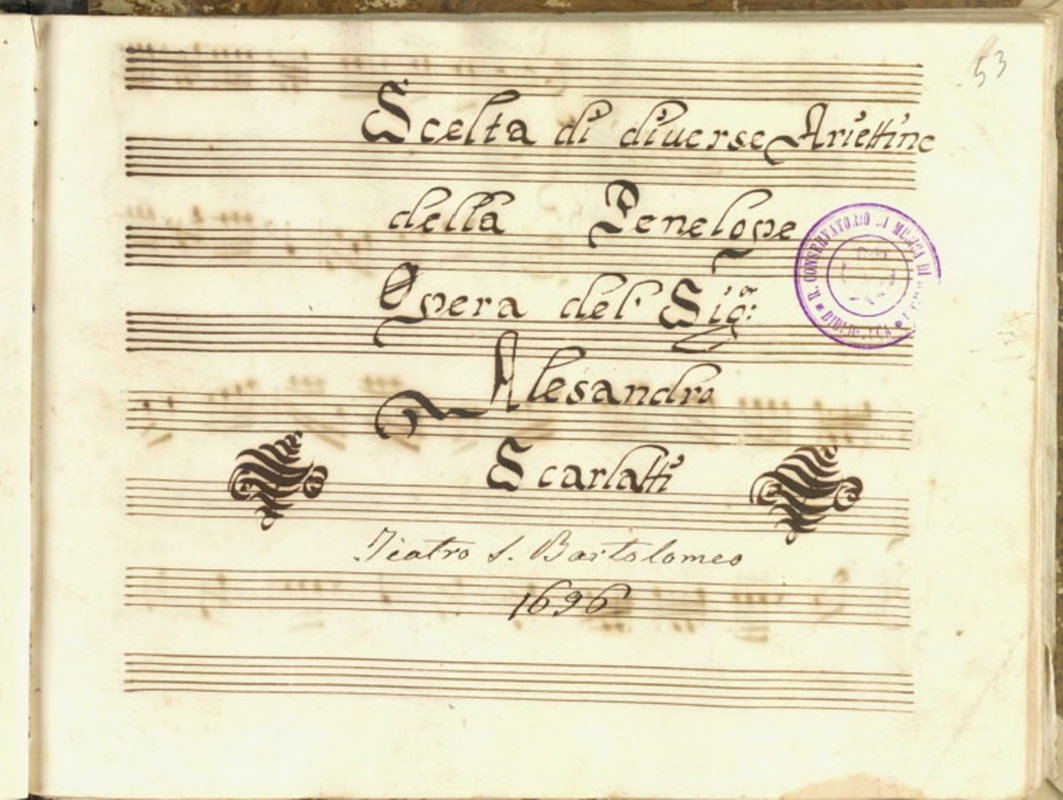 53
Scelta di diverse Ariettine
della Penelope
Opera del Sig.or
Alesandro
Scarlatti
Teatro S. Bartolomeo
1696
R. CONSERVATORIO DI MUSICA DI
BIBLIOTECA